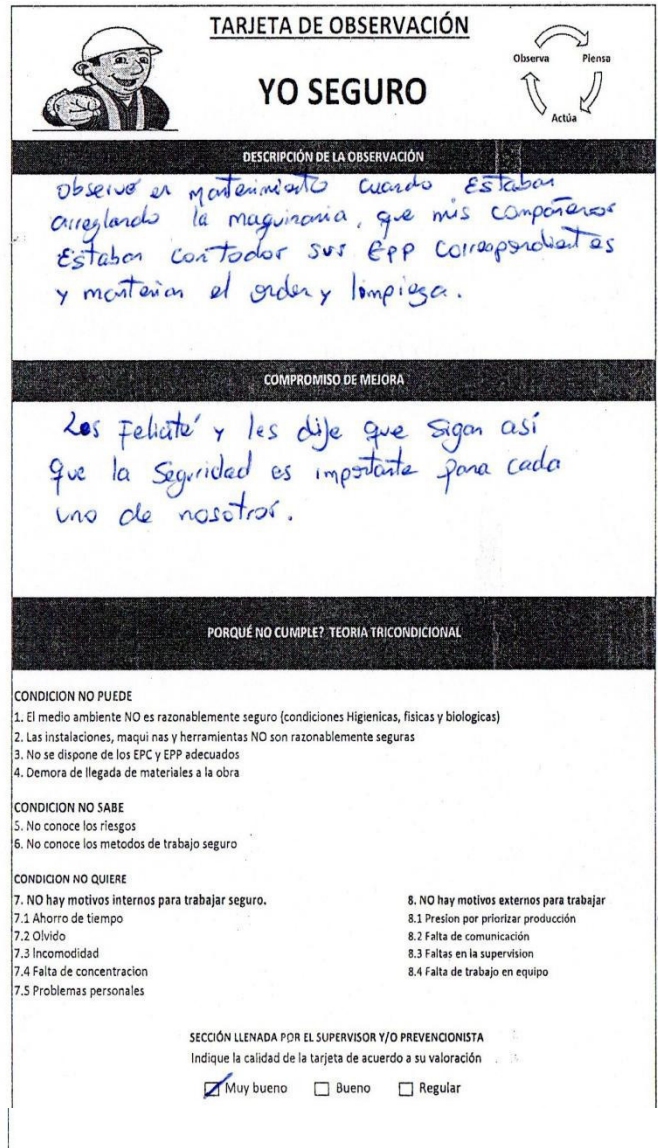 TARJETA DE OBSERVACIÓN
YO SEGURO
Observa
Piensa
Actúa
DESCRIPCIÓN DE LA OBSERVACIÓN
Observé en mantenimiento cuando Estaban
arreglando la maquinaria, que mis compañeros
Estaban con todos sus EPP correspondientes
y mantenian el orden y limpieza.
COMPROMISO DE MEJORA
Los Felicité y les dije que sigan así
que la Seguridad es importante para cada
uno de nosotros.
PORQUÉ NO CUMPLE? TEORIA TRICONDICIONAL
CONDICION NO PUEDE
1. El medio ambiente NO es razonablemente seguro (condiciones Higienicas, fisicas y biologicas)
2. Las instalaciones, maqui nas y herramientas NO son razonablemente seguras
3. No se dispone de los EPC y EPP adecuados
4. Demora de llegada de materiales a la obra
CONDICION NO SABE
5. No conoce los riesgos
6. No conoce los metodos de trabajo seguro
CONDICION NO QUIERE
7. NO hay motivos internos para trabajar seguro.
7.1 Ahorro de tiempo
7.2 Olvido
7.3 Incomodidad
7.4 Falta de concentracion
7.5 Problemas personales
8. NO hay motivos externos para trabajar
8.1 Presion por priorizar producción
8.2 Falta de comunicación
8.3 Faltas en la supervision
8.4 Falta de trabajo en equipo
SECCIÓN LLENADA POR EL SUPERVISOR Y/O PREVENCIONISTA
Indique la calidad de la tarjeta de acuerdo a su valoración
Muy bueno Bueno Regular